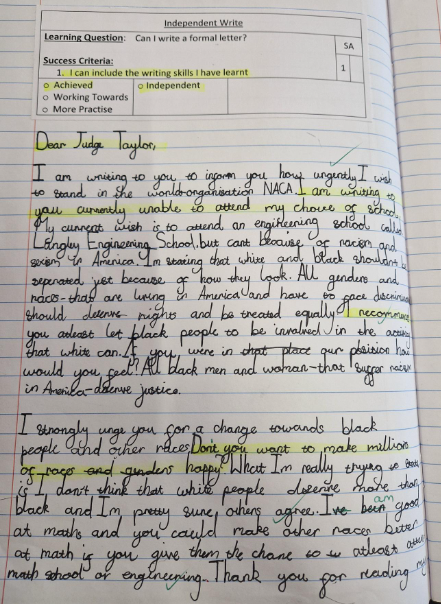 Independent Write
Learning Question: Can I write a formal letter?
SA
Success Criteria:
1. I can include the writing skills I have learnt
1
o Achieved
o Independent
o Working Towards
o More Practise
Dear Judge Taylor,
I am writing to you to inform you how urgently I wish
to stand in the world-organisation NACA. I am writing to
you currently unable to attend my choice of school.
My current wish is to attend an engineering school called
Langley Engineering School, but cant because of racism and
sexism in America. I'm stating that white and black shouldn't be
seperated just because of how they look. All genders and
races-that are living in America and have to face
should deserve rights and be treated equally. I
you atleast let black people to be involved in the
that white can. If you were in that place our
would you feel? All black men and woman-that suffer
in America-deserve justice.
I strongly urge you for a change towards black
people and other races. Don't you want to make million
of races and genders happy? What I'm really trying to
is I don't think that white people deserve more than
black and I'm pretty sure others agree. I've been am good
at maths and you could make other races better
at math if you give them the chane to atleast
math school or engineering. Thank you for reading